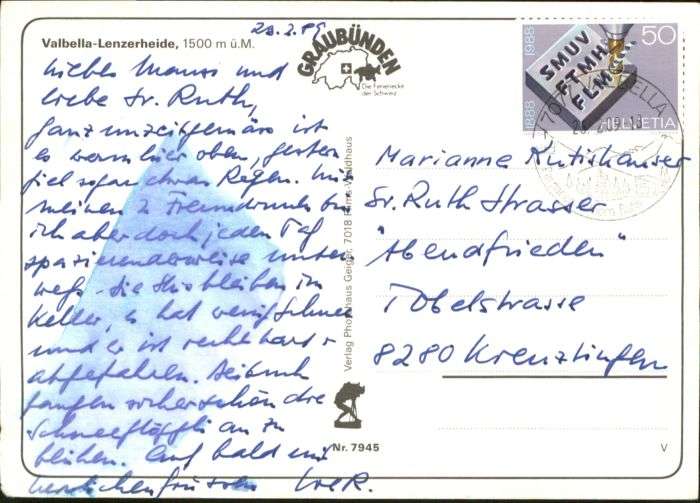 23.2.89
Valbella-Lenzerheide, 1500 m ü.M.
GRAUBÜNDEN
Die Ferienecke
der Schweiz
Liebes und
liebe Sr. Ruth,
ganz unzeitgemäss ist
es warm hier oben, gestern
fiel sogar etwas Regen. Mit
meinen 2 Freundinnen bin
ich aber doch jeden Tag
spaziererderweise unter-
wegs - die Ski bleiben im
Keller, es hat wenig Schnee
und er ist recht hart +
abgefahren. Bei Euch
fangen sicher schon die
Schneeglöggli an zu
blühen. Auf bald mit
herzlichen Grüssen
Verlag Photohaus Geiger, 7018 Flims-Waldhaus
Nr. 7945
V
1888 1988
50
SMUV
FTMH
FLM
HELVETIA
VALBELLA
Marianne Rutishauser
Sr. Ruth Strasser
"Abendfrieden"
Tobelstrasse
8280 Kreuzlingen